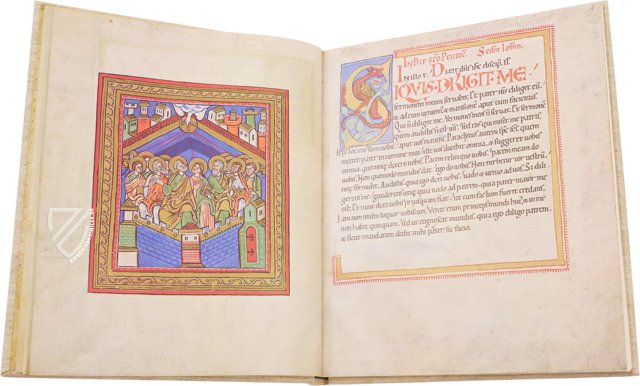 IN DIE SCO PENTEC. Sedm Iohm.
In illo t. Dixit dns ihc discip. s.
SIQUIS DILIGIT ME
sermonem meum servabit. Et pater ms diliget eu
& ad eum veniem & mansione aput eum faciem
Qui n diligit me. Sermones meos n servat. Et
sermone quem audistis n est ms. Sed ei qui misit me patris.
hec locutus sum vobis apud vos manens. Paraclitus autem sps scs. quem
mittet pater in nomine meo. ille vos docebit omnia. & suggeret vobis
omnia quecumq; dixero vobis. Pacem relinquo vobis. pacem meam do
vobis. Non quomodo mundus dat. ego do vobis. Non turbetur cor vestrum.
neq; formidet. Audistis quia ego dixi vobis. vado & venio ad vos. Si dili
geretis me. gauderetis utiq; quia vado ad patrem. quia pater maior me
est. Et nunc dixi vobis prius quam fiat. ut cum factum fuerit credatis.
Iam non multa loquar vobiscum. Venit enim princeps mundi hui; & in me
non habet quicquam. Sed ut cognoscat mundus. quia ego diligo patrem.
& sicut mandatum dedit mihi pater. sic facio.